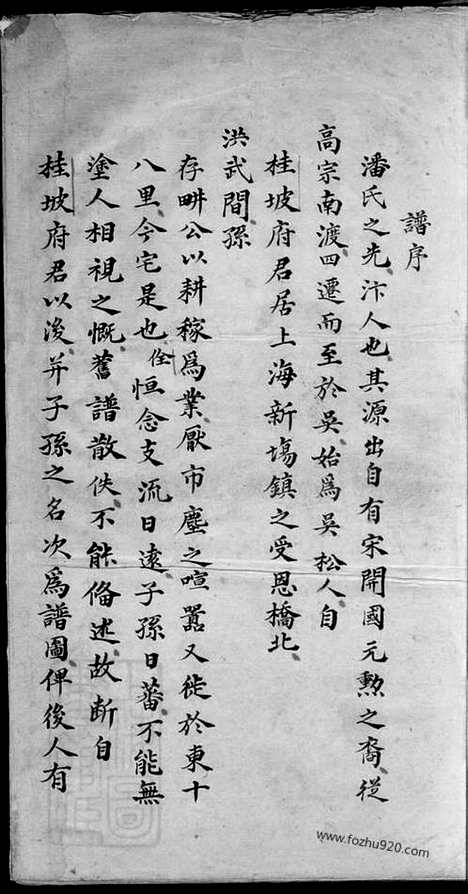 譜序
潘氏之先汴人也其源出自有宋開國元勲之裔従
高宗南渡四遷而至於吳始爲吳松人自
桂坡府君居上海新塲鎮之受恩橋北
洪武間孫
存畊公以耕稼爲業厭市塵之喧嚣又徙於東十
八里今宅是也佺恒念支流日逺子孫日蕃不能無
塗人相視之慨舊譜散佚不能俻述故断自
桂坡府君以後并子孫之名次爲譜圖俾後人有
www.fozhu920.com